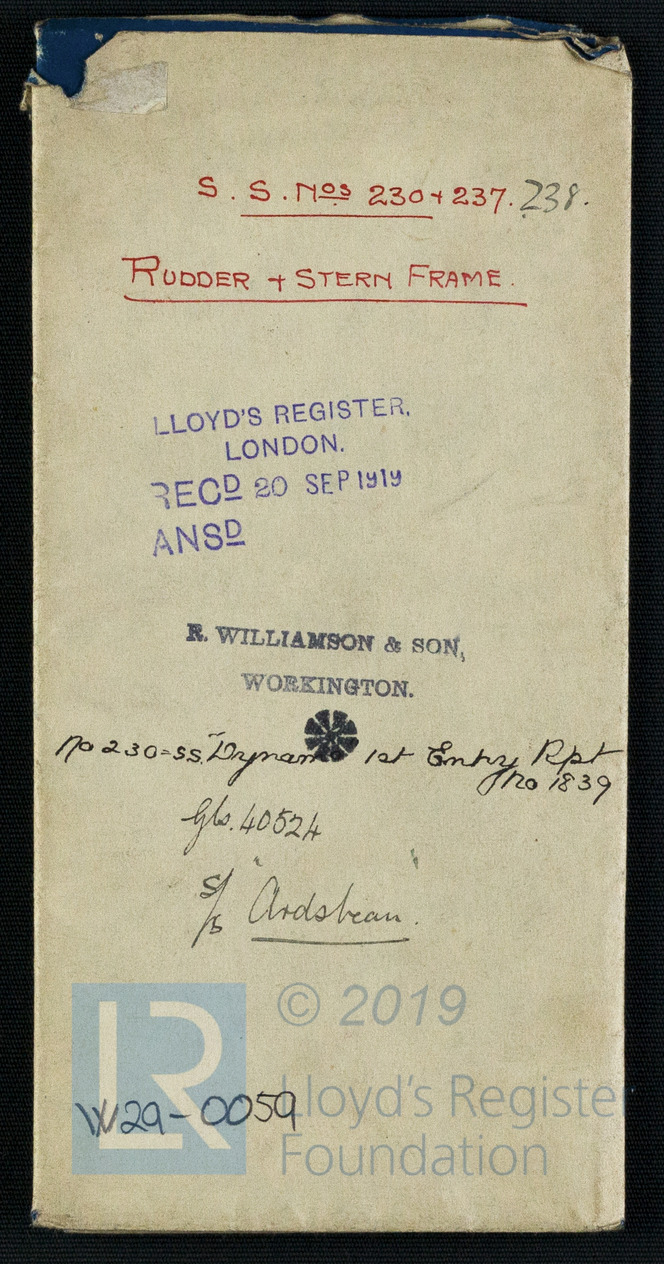 S. S. Nos 230 + 237. 238.
RUDDER + STERN FRAME.
LLOYD'S REGISTER,
LONDON.
RECD 20 SEP 1919
ANSD
R. WILLIAMSON & SON,
WORKINGTON.
No 230 = SS. "Dynamo 1st Entry Rpt
No 1839
Gls. 40524
S/S "Ardsbean".
LR
© 2019
Lloyd's Register
Foundation
W29-0059